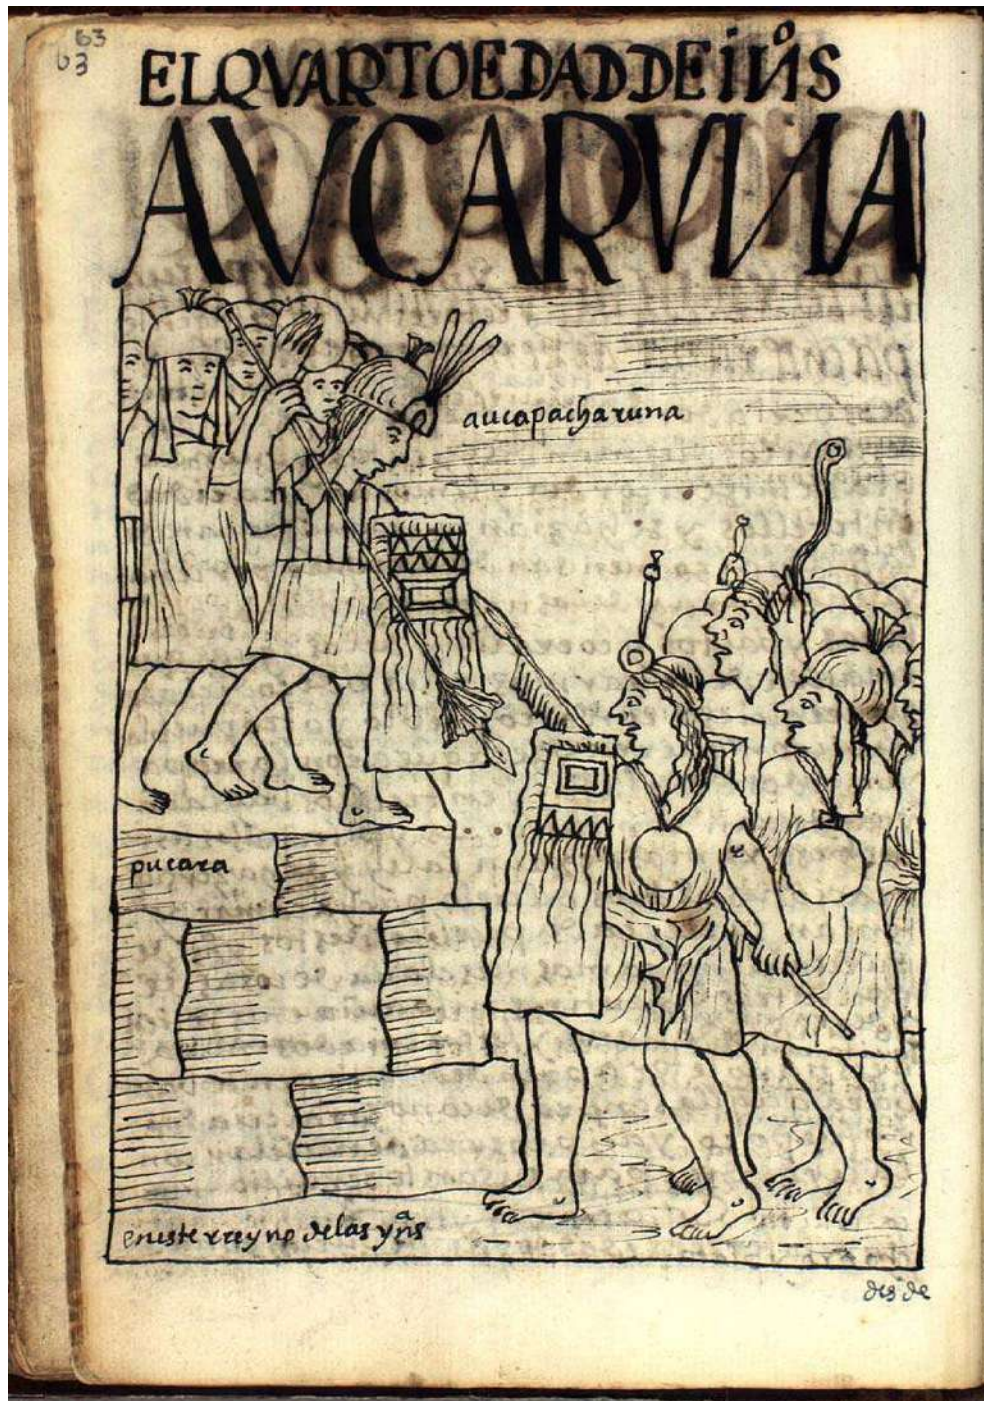 63
63
EL QVARTO EDAD DE iNoS
AVCARVNA
aucapacharuna
pucara
eneste rreyno delas ynas
desde